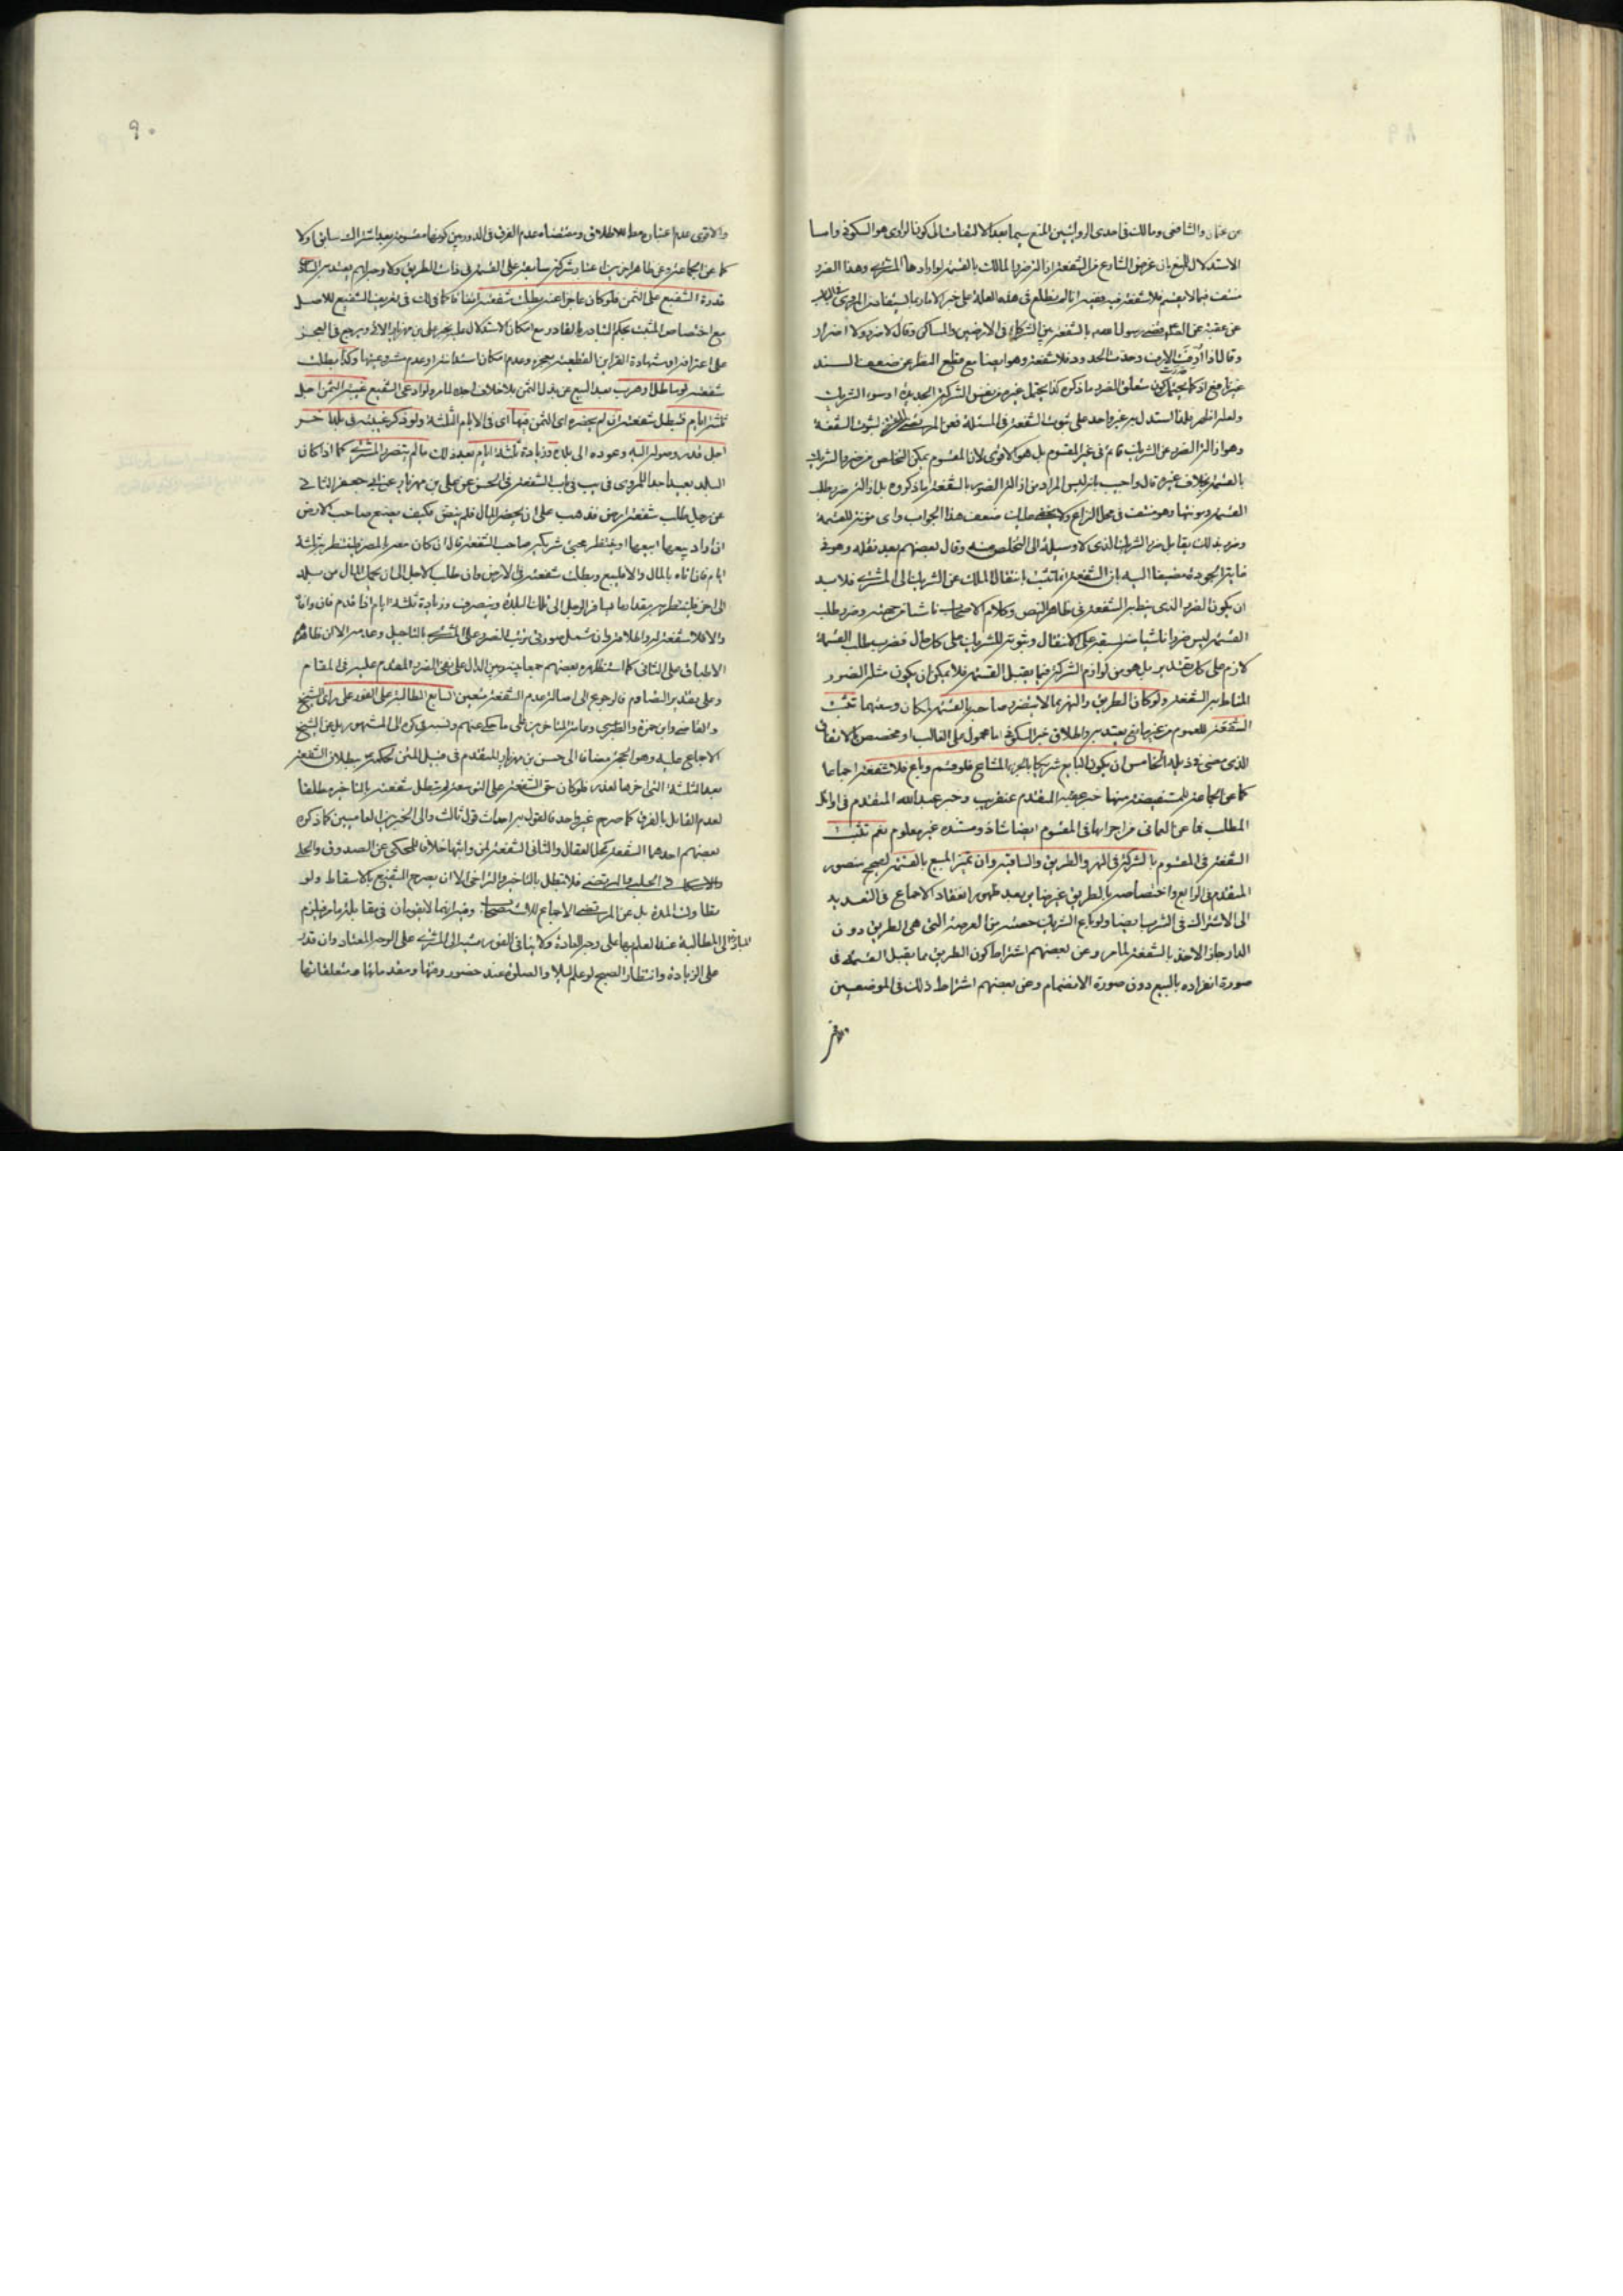 عن عثمان والشافعي ومالك في احدى الروايتين المنع سيما بعد الالتفات الى كون الراوي هو السكوني واما
الاستدلال للمنع بان غرض الشارع من الشفعة ازالة ضرر المالك بالقسمة لو ارادها المشتري وهذا الضرر
منتف فيما لا يقسم فلا شفعة فيه ففيه انا لم نطلع في هذه العلة على خبر الامارة بالمستفاد من المروي
عن عقبة عن الصادق قضى رسول الله بالشفعة بين الشركاء في الارضين والمساكن وقال لا ضرر ولا اضرار
وقال اذا ارفت الارف وحدت الحدود فلا شفعة وهو ايضا مع قطع النظر عن ضعف السند
غير نافع اذ كما يحتمل كون متعلق الضرر ما ذكره كذا يحتمل غيره من نفس الشركة الجديدة او سوء الشريك
ولعله اظهر ولذا استدل به غير واحد على ثبوت الشفعة في المسئلة فعن المرتضى لثبوت الشفعة
وهو ازالة الضرر عن الشريك قائم في غير المقسوم بل هو الاقوى لان المقسوم يمكن التخلص من ضرر الشريك
بالقسمة بخلاف غيره قال واجيب بانه ليس المراد من ازالة الضرر بالشفعة ما ذكروه بل ازالة ضرر طلب
القسمة ومونتها وهو منتف في محل النزاع ولا يخفى عليك ضعف هذا الجواب واى مونة للقسمة
وضرر بذلك يقابل ضرر الشريك الذي لا وسيلة الى التخلص منه وقال بعضهم بعد نقله وهو في
غاية الجودة مضيفا اليه بان الشفعة انما تثبت بانتقال الملك عن الشريك الى المشتري فلا بد
ان يكون الضرر الذي ينظر الشفعة في ظاهر النص وكلام الاصحاب ناشئا من جهته وضرر طلب
القسمة ليس ضررا ناشئا منه لسبقه على الانتقال وثبوته للشريك على كل حال فضرر طلب القسمة
لازم على كل تقدير بل هو من لوازم الشركة فيما يقبل القسمة فلا يمكن ان يكون مثل الضرر
المناط به الشفعة ولو كان الطريق والنهر مما لا يتضرر صاحبه بالقسمة لمكان وسعهما تثبت
الشفعة للعموم من غير مانع يعتد به واطلاق خبر السكوني اما محمول على الغالب او مخصص بالاتفاق
الذي مضى في ذيله الخامس ان يكون البايع شريكا بالجزء المشاع فلو قسم وباع فلا شفعة اجماعا
كما عن الجماعة للمستفيضة منها خبر عقبة المتقدم عنقريب وخبر عبد الله المتقدم في اوائل
المطلب فما عن العماني من اجرائها في المقسوم ايضا شاذ ومستنده غير معلوم نعم تثبت
الشفعة في المقسوم بالشركة في النهر والطريق والساقية وان تميز المبيع بالقسمة لصحيح منصور
المتقدم في الرابع واختصاصه بالطريق غير ضاير بعد ظهور انعقاد الاجماع في التعدية
الى الاشتراك في الشرب ايضا ولو باع الشريك حصته من العرصة التي هي الطريق دون
الدار جاز الاخذ بالشفعة لما مر وعن بعضهم اشتراط كون الطريق مما يقبل القسمة في
صورة انفراده بالبيع دون صورة الانضمام وعن بعضهم اشتراط ذلك في الموضعين
٩٠
والاقوى عدم اعتباره مط للاطلاق ومقتضاه عدم الفرق في الدور بين كونها مقسومة بعد اشتراك سابق او لا
كما عن الجماعة وعن ظاهر اخرين اعتبار شركة سابقة على القسمة في ذات الطريق ولا وجه له يعتد به السادس
قدرة الشفيع على الثمن فلو كان عاجزا عنه بطلت شفعته اتفاقا كما في لك في تعريف الشفيع للاصل
مع اختصاص المثبت بحكم التبادر بالقادر مع امكان الاستدلال عليه بخبر علي بن مهزيار الاتي ويرجع في العجز
على اعترافه او شهادة القراين القطعية بعجزه وعدم امكان استدانته او عدم مشروعيتها وكذا بطلت
شفعته لو ماطل او هرب بعد البيع عن بذل الثمن بلا خلاف اجده لما مر ولو ادعى الشفيع غيبة الثمن اجل
ثلثة ايام فتبطل شفعته ان لم يحضره اى الثمن فيها اى في الايام الثلثة ولو ذكر غيبته في بلد اخر
اجل قدر وصوله اليه وعوده الى بلده وزيادة ثلثة ايام بعد ذلك ما لم يتضرر المشتري كما اذا كان
البلد بعيدا جدا للمروي في يب في باب الشفعة في الحسن عن علي بن مهزيار عن ابي جعفر الثاني
عن رجل طلب شفعة ارض فذهب على ان يحضر المال فلم ينض فكيف يصنع صاحب الارض
ان اراد بيعها ايبيعها او ينتظر مجئ شريكه صاحب الشفعة قال ان كان معه بالمصر فلينتظر به ثلثة
ايام فان اتاه بالمال والا فليبع وبطلت شفعته في الارض وان طلب الاجل الى ان يحمل المال من بلد
الى اخر فلينتظر به مقدار ما يسافر الرجل الى تلك البلدة وينصرف وزيادة ثلثة ايام اذا قدم فان وافاه
والا فلا شفعة له واطلاقه وان شمل صورتي ترتب الضرر على المشتري بالتاجيل وعدمه الا ان ظاهرهم
الاطباق على الثاني كما استظهره بعضهم جمعا بينه وبين الدال على نفي الضرر المقدم عليه في المقام
وعلى تقدير التصادم فالرجوع الى اصالة عدم الشفعة متعين السابع المطالبة على الفور على راى الشيخ
والقاضي وابن حمزة والطبرسي وعامة المتاخرين على ما حكي عنهم ونسبه في كره الى المشهور بل عن الشيخ
الاجماع عليه وهو الحجة مضافا الى حسن بن مهزيار المتقدم في قبيل المتن لحكمه ببطلان الشفعة
بعد الثلثة التي اخرها لعذر فلو كان حق الشفعة على التوسعة لم تبطل شفعته بالتاخير مطلقا
لعدم القايل بالفرق كما صرح غير واحد فالقول به احداث قول ثالث والى الخبرين العاميين كما ذكره
بعضهم احدهما الشفعة كحل العقال والثاني الشفعة لمن واثبها خلافا للمحكي عن الصدوق والحلي
والاسكافي والحلبي والمرتضى فلا تبطل بالتاخير والتراخي الا ان يصرح الشفيع بالاسقاط ولو
تطاولت المدة بل عن المرتضى الاجماع للاستصحاب وفيه انهما لا يقومان في مقابلة ما مر فيلزم
المبادرة الى المطالبة عند العلم بها على وجه العادة ولا ينافي الفور مشيه الى المشتري على الوجه المعتاد وان قدر
على الزيادة وانتظار الصبح لو علم ليلا والصلوة عند حضور وقتها ومقدماتها ومتعلقاتها